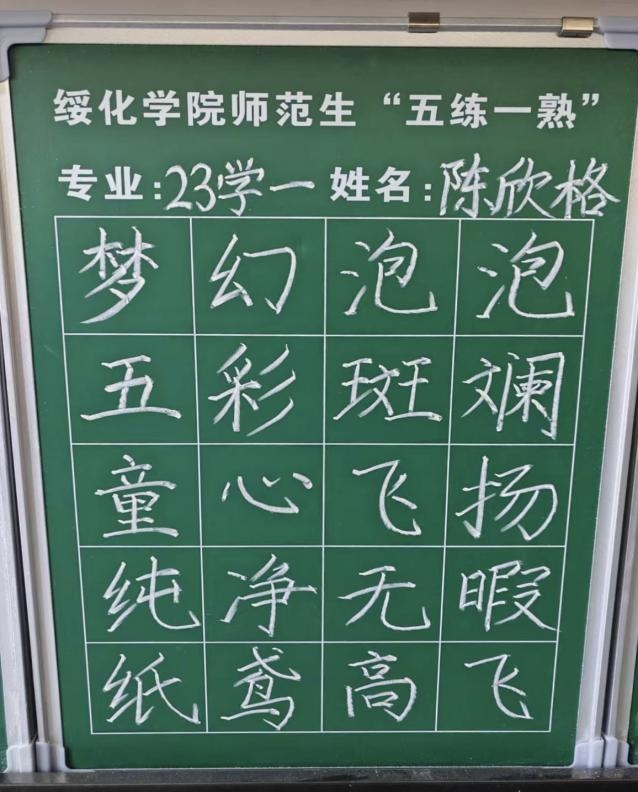 绥化学院师范生“五练一熟”
专业:23学一 姓名:陈欣格
梦幻泡泡
五彩斑斓
童心飞扬
纯净无暇
纸鸢高飞